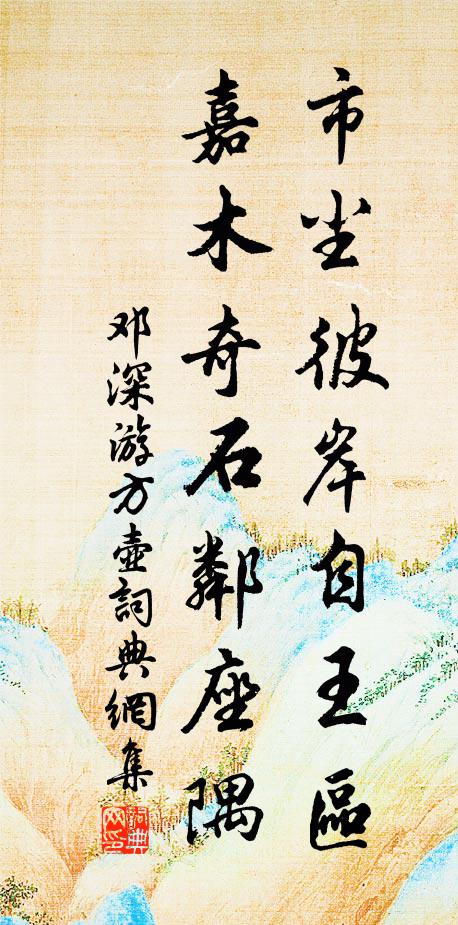 市尘彼岸自王區
嘉木奇石鄰座隅
邓深游方壺詞典網集
詞典网印